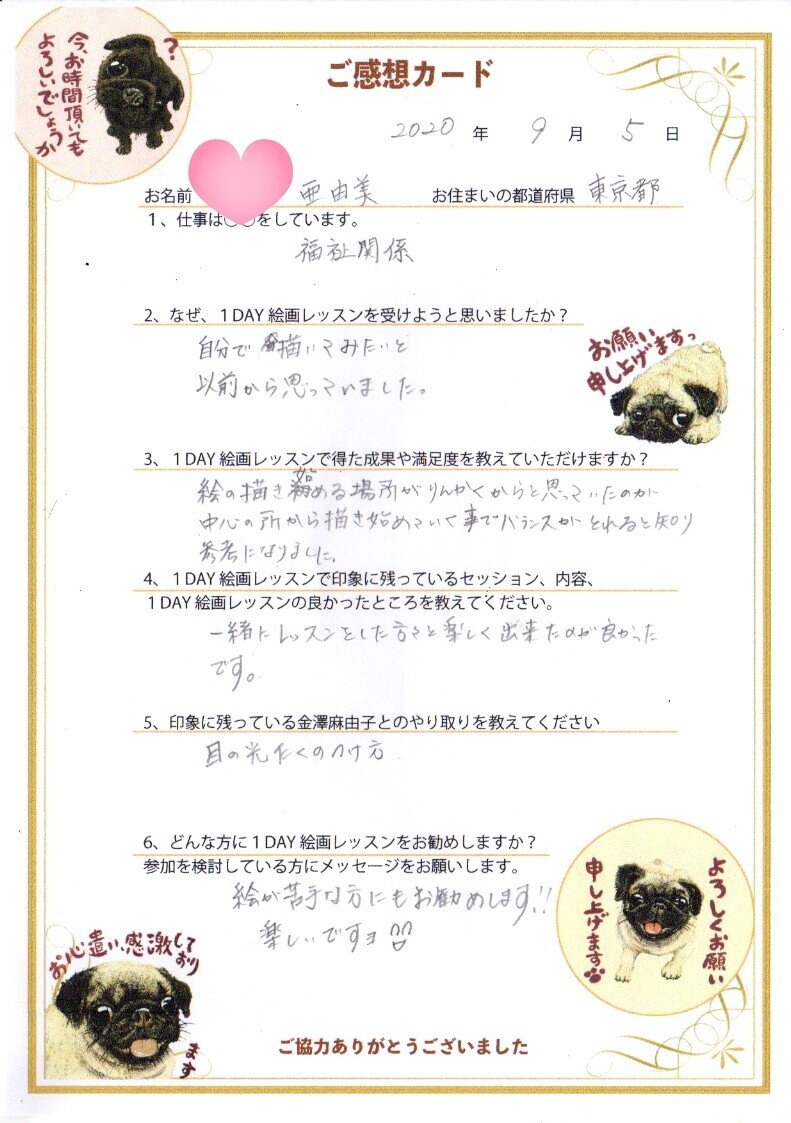 今、お時間頂いても
よろしいでしょうか
?
ご感想カード
2020 年 9 月 5 日
お名前 亜由美 お住まいの都道府県 東京都
1、仕事は○○をしています。
福祉関係
2、なぜ、1DAY 絵画レッスンを受けようと思いましたか？
自分で描いてみたいと
以前から思っていました。
お願い
申し上げますっ
3、1DAY 絵画レッスンで得た成果や満足度を教えていただけますか？
絵の描き始める場所がりんかくからと思っていたのが
中心の所から描き始めていく事でバランスがとれると知り
参考になりました。
4、1DAY 絵画レッスンで印象に残っているセッション、内容、
1DAY 絵画レッスンの良かったところを教えてください。
一緒にレッスンをした方々と楽しく出来たのが良かった
です。
5、印象に残っている金澤麻由子とのやり取りを教えてください
目の光たくのつけ方
6、どんな方に1DAY 絵画レッスンをお勧めしますか？
参加を検討している方にメッセージをお願いします。
絵が苦手な方にもお勧めします!!
楽しいですヨ
よろしくお願い
申し上げます
お心遣い、感激しており
ます
ご協力ありがとうございました